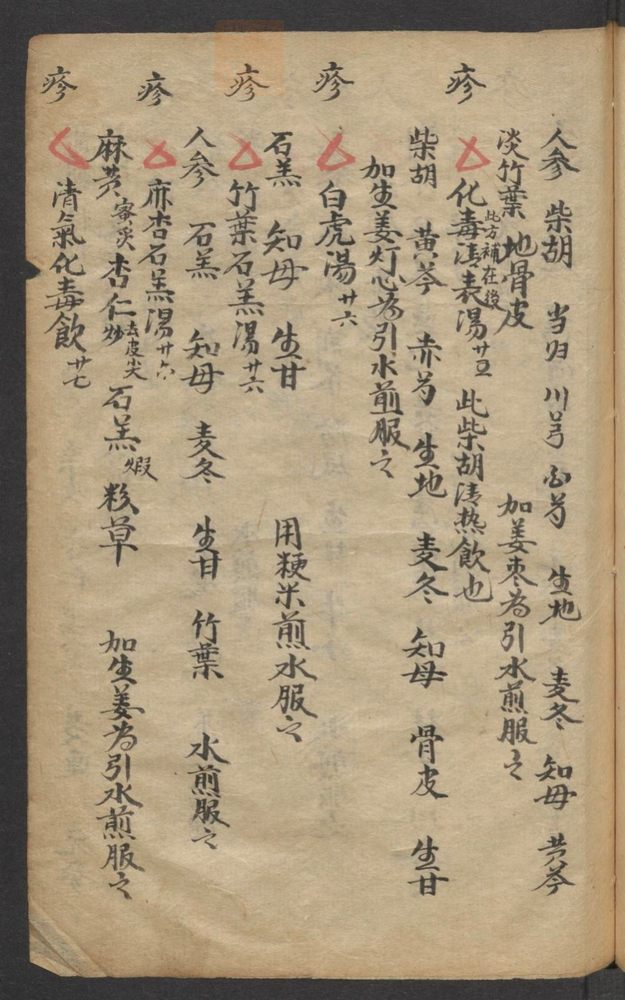 人参 柴胡 当归 川芎 白芍 生地 麦冬 知母 黄芩
淡竹葉 地骨皮 加姜枣為引水煎服之
疹 化毒清表湯廿五 此方補在後 此柴胡清热飲也
柴胡 黄芩 赤芍 生地 麦冬 知母 骨皮 生甘
加生姜灯心為引水煎服之
疹 白虎湯廿六
石羔 知母 生甘 用粳米煎水服之
疹 竹葉石羔湯廿六
人参 石羔 知母 麦冬 生甘 竹葉 水煎服之
疹 麻杏石羔湯廿六
麻黄蜜炙 杏仁去皮尖炒 石羔煆 粉草 加生姜為引水煎服之
疹 清氣化毒飲廿七